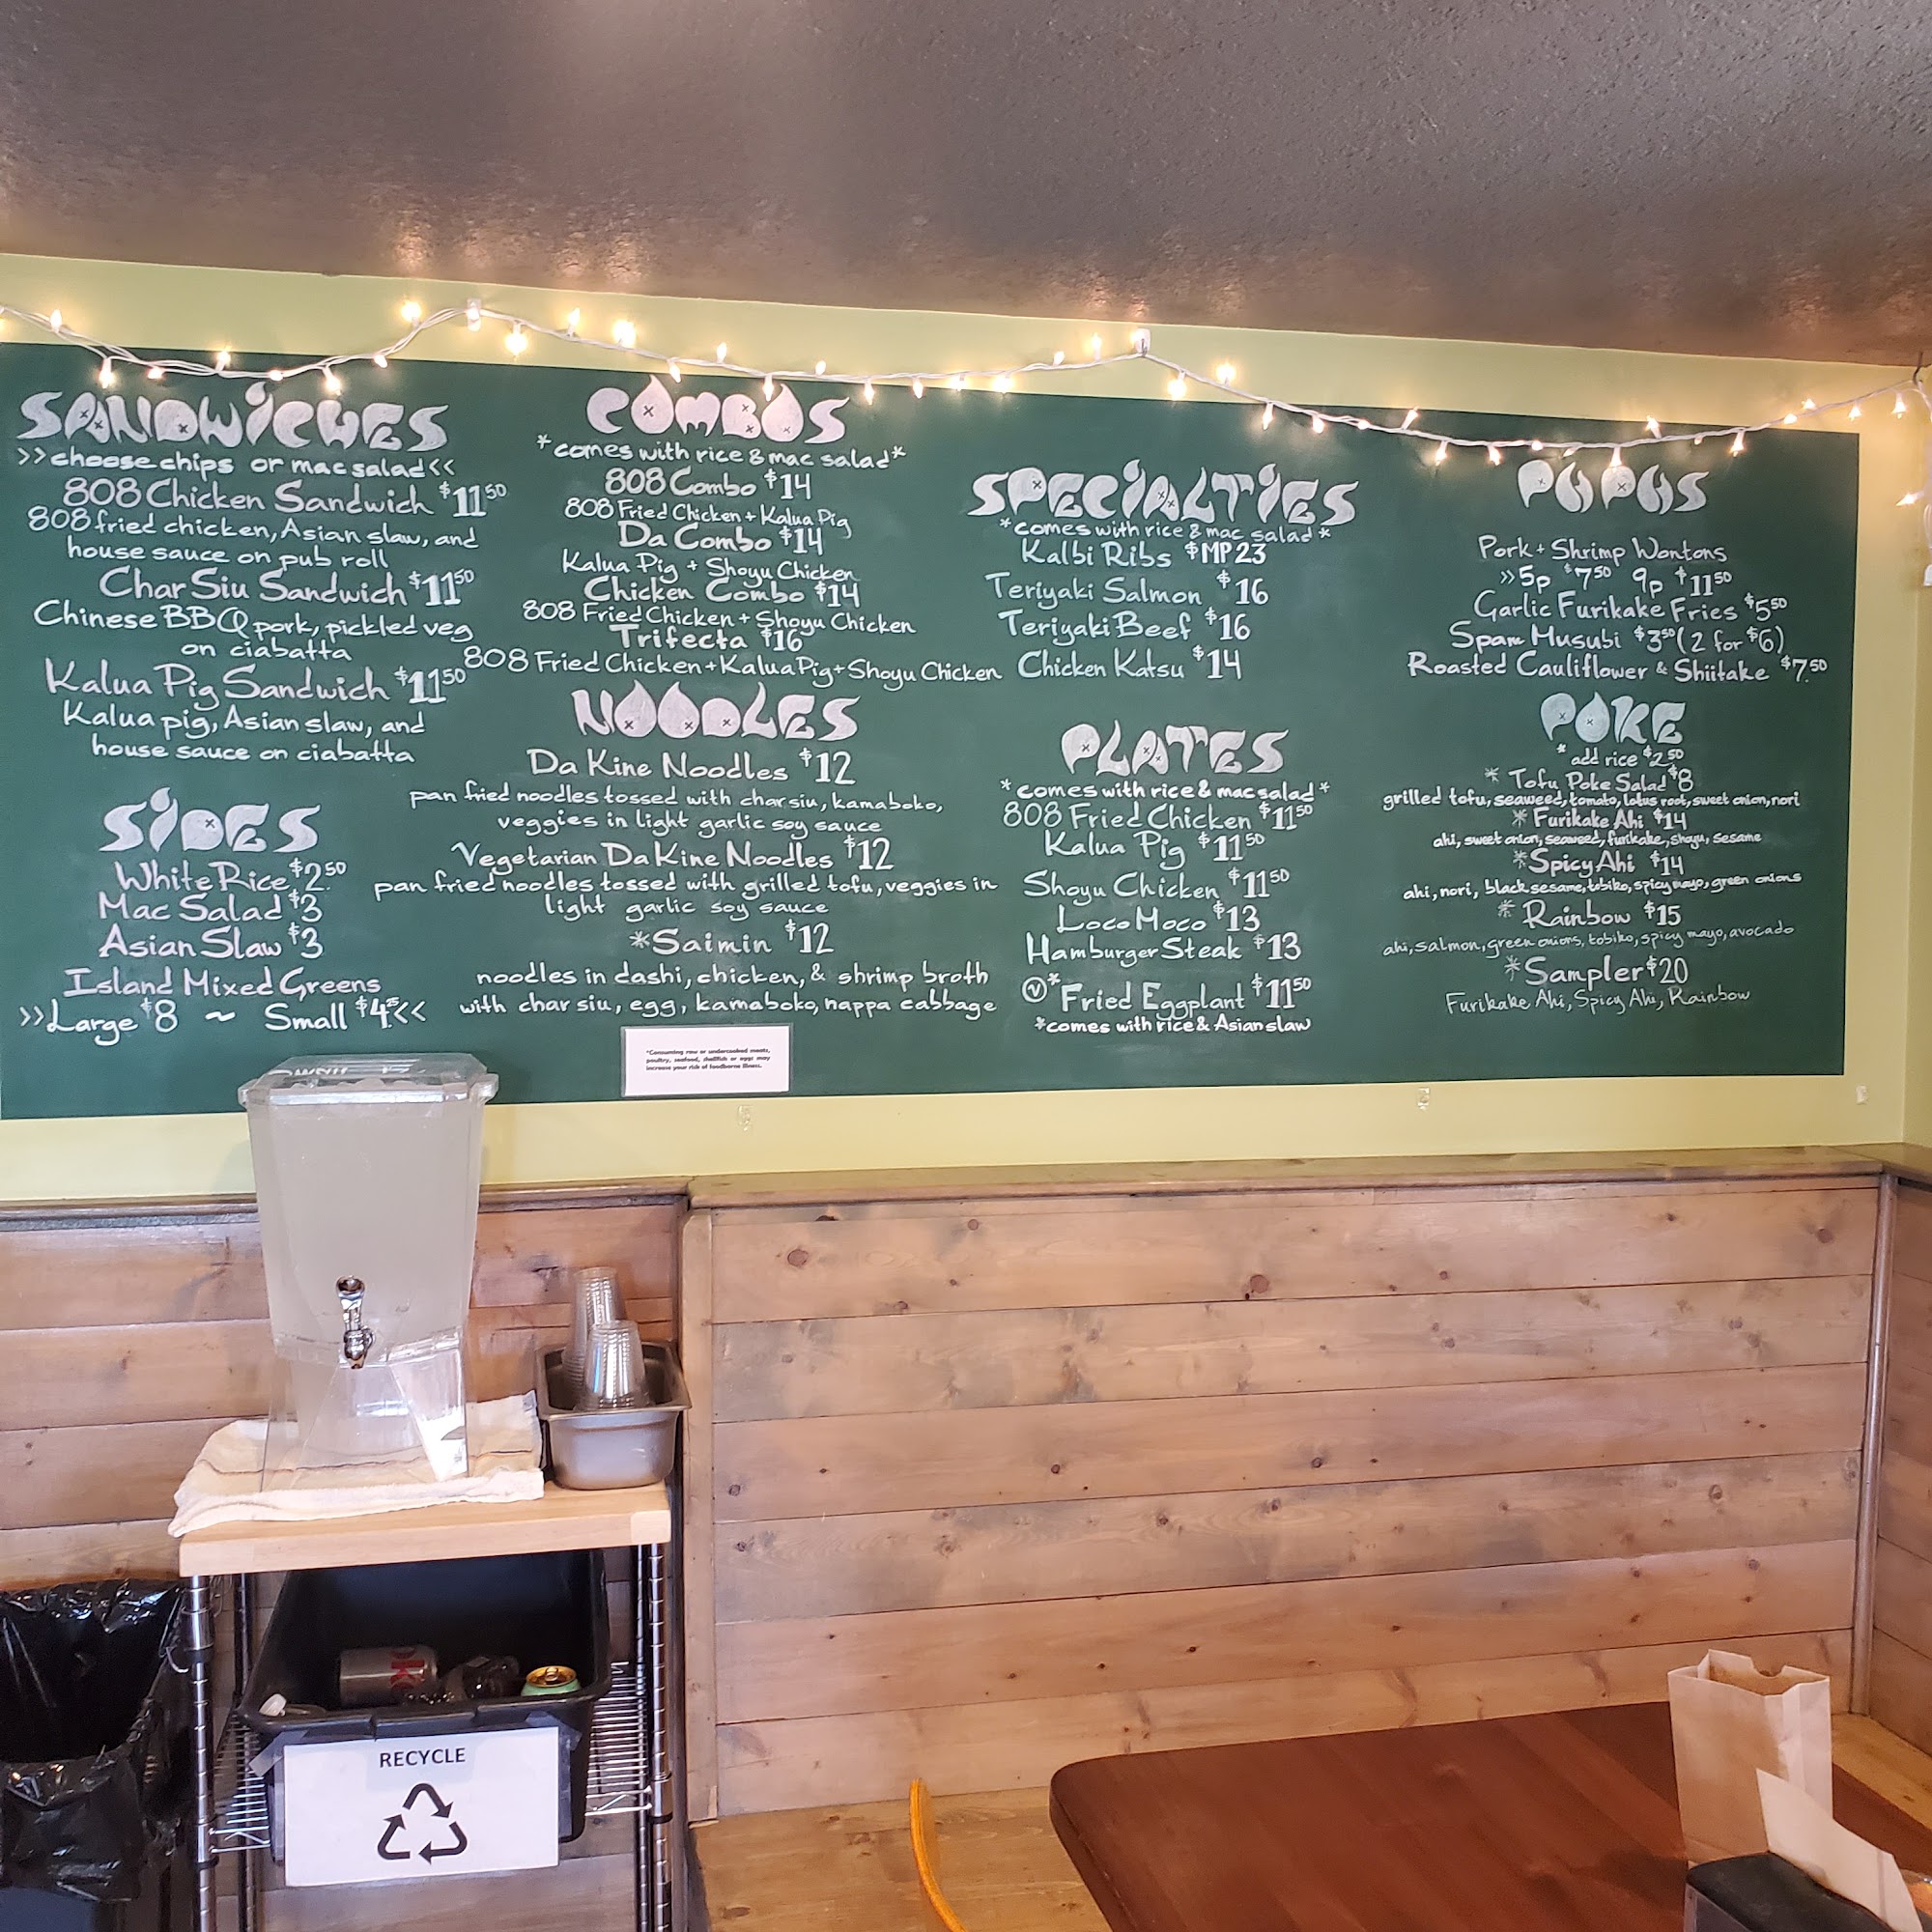 SANDWICHES
>>choose chips or mac salad<<
808 Chicken Sandwich $11.50
808 fried chicken, Asian slaw, and
house sauce on pub roll
Char Siu Sandwich $11.50
Chinese BBQ pork, pickled veg
on ciabatta
Kalua Pig Sandwich $11.50
Kalua pig, Asian slaw, and
house sauce on ciabatta
SIDES
White Rice $2.50
Mac Salad $3
Asian Slaw $3
Island Mixed Greens
>>Large $8 ~ Small $4.25<<
COMBOS
*comes with rice & mac salad*
808 Combo $14
808 Fried Chicken + Kalua Pig
Da Combo $14
Kalua Pig + Shoyu Chicken
Chicken Combo $14
808 Fried Chicken + Shoyu Chicken
Trifecta $16
808 Fried Chicken + Kalua Pig + Shoyu Chicken
NOODLES
Da Kine Noodles $12
pan fried noodles tossed with char siu, kamaboko,
veggies in light garlic soy sauce
Vegetarian Da Kine Noodles $12
pan fried noodles tossed with grilled tofu, veggies in
light garlic soy sauce
*Saimin $12
noodles in dashi, chicken, & shrimp broth
with char siu, egg, kamaboko, nappa cabbage
*Consuming raw or undercooked meats,
poultry, seafood, shellfish or eggs may
increase your risk of foodborne illness.
SPECIALTIES
*comes with rice & mac salad*
Kalbi Ribs $MP 23
Teriyaki Salmon $16
Teriyaki Beef $16
Chicken Katsu $14
PLATES
*comes with rice & mac salad*
808 Fried Chicken $11.50
Kalua Pig $11.50
Shoyu Chicken $11.50
Loco Moco $13
Hamburger Steak $13
(V)* Fried Eggplant $11.50
*comes with rice & Asian slaw
PUPUS
Pork + Shrimp Wontons
>>5p $7.50 9p $11.50
Garlic Furikake Fries $5.50
Spam Musubi $3.50 (2 for $6)
Roasted Cauliflower & Shiitake $7.50
POKE
*add rice $2.50
* Tofu Poke Salad $8
grilled tofu, seaweed, tomato, lotus root, sweet onion, nori
* Furikake Ahi $14
ahi, sweet onion, seaweed, furikake, shoyu, sesame
*Spicy Ahi $14
ahi, nori, black sesame, tobiko, spicy mayo, green onions
* Rainbow $15
ahi, salmon, green onions, tobiko, spicy mayo, avocado
*Sampler $20
Furikake Ahi, Spicy Ahi, Rainbow
RECYCLE